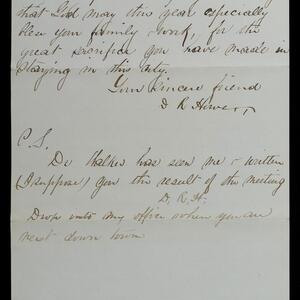 that God may this year especially
bless your family Song, for the
great sacrifice you have made in
staying in this City.
Your sincere friend
D R H
P.S.
Dr Walker has seen me & written
(I suppose) you the result of the meeting
D. R. H.
Drop into my office when you are
next down town